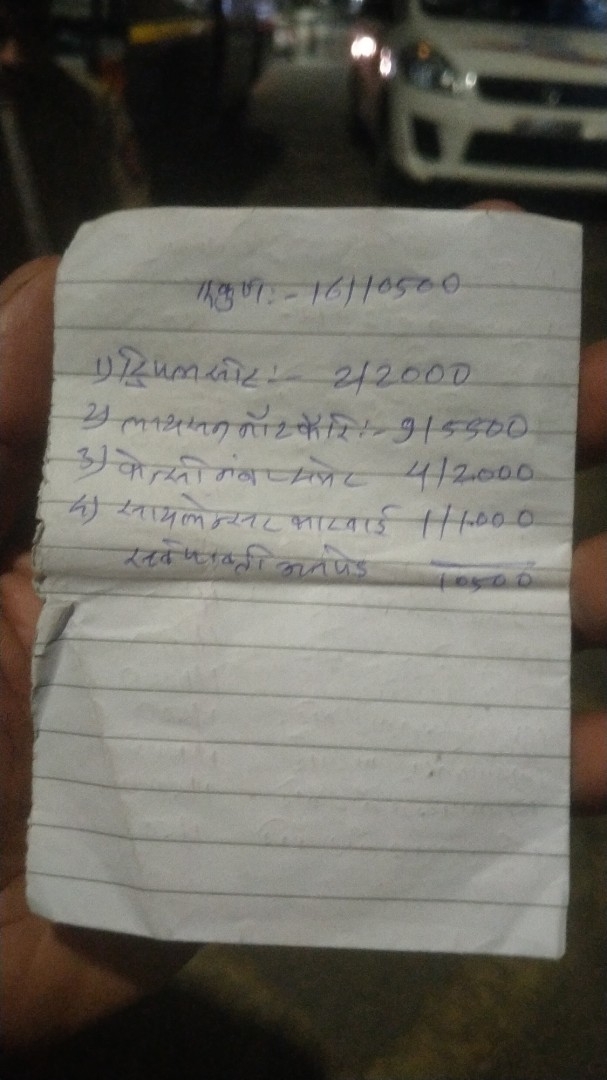 एकुण:- 16/10500
1) ट्रिपलसीट:- 2/2000
2) लायसन नॉट कॅरि:- 9/5500
3) फॅन्सी नंबर प्लेट 4/2000
4) सायलेन्सर कारवाई 1/1000
सर्व पावती अनपेड 10500